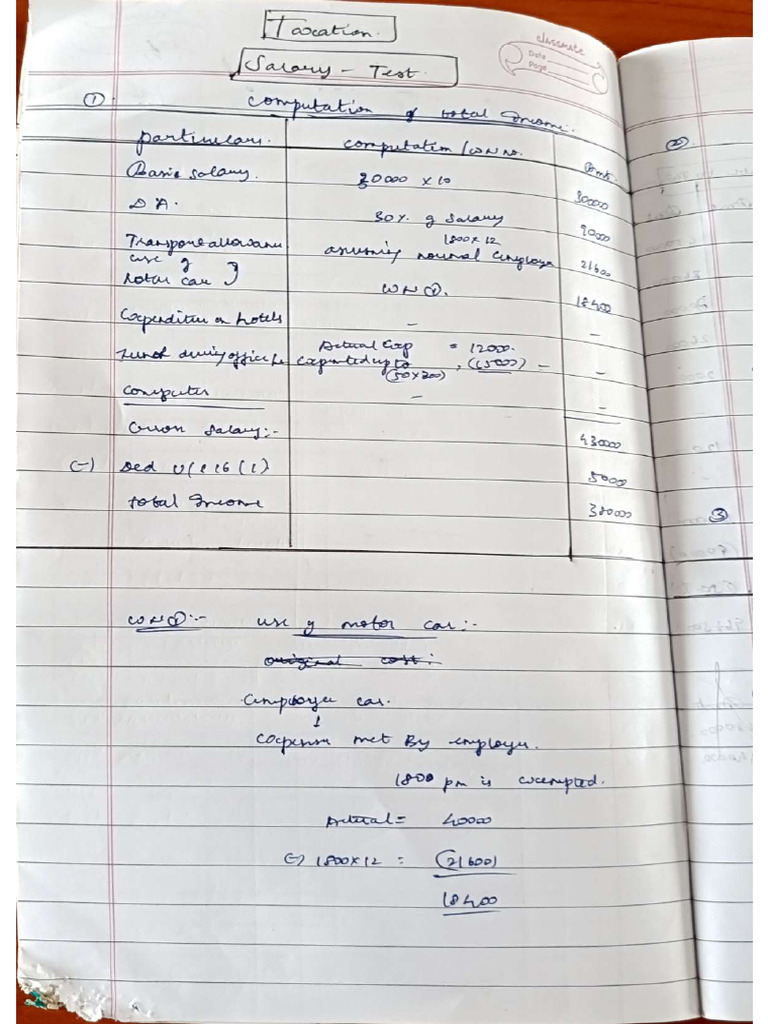 Taxation.
classmate
Date
Page
Salary - Test.
① Computation of total Income:-
particulars. computation / WN no. Amt.
Basic salary. 30000 × 10 30000
D A. 30% of salary 90000
Transport allowance 1800 × 12 assuming normal employee 21600
use of motor car } WN ①. 18400
Expenditure on hotels - -
Lunch during office hr exempted up to Actual Exp = 12000. (50×300), (15000) - -
Computer - -
Gross salary:- 430000
(-) Ded U/s 16(i) 5000
total Income 380000
WN①:- use of motor car:-
original cost:
Employee car.
↓
Expenses met By employer.
1800 pm is exempted.
Actual = 40000
(-) 1800×12 = (21600)
18400
②
③